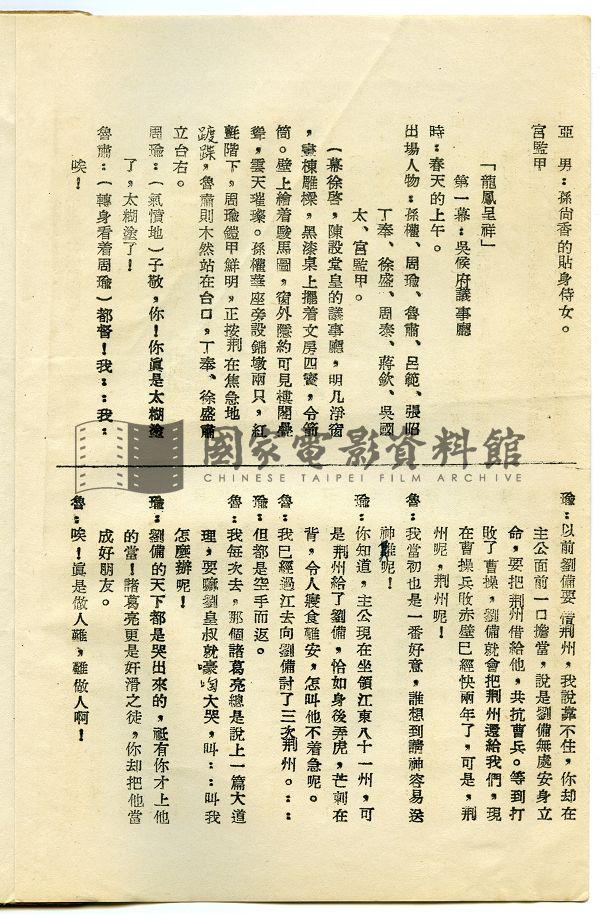 亞　男：孫尙香的貼身侍女。
宮監甲
「龍鳳呈祥」
第一幕：吳侯府議事廳
時：春天的上午。
出場人物：孫權、周瑜、魯肅、呂範、張昭
丁奉、徐盛、周泰、蔣欽、吳國
太、宮監甲。
（幕徐啓，陳設堂皇的議事廳，明几淨窗
，畫棟雕樑，黑漆桌上擺着文房四寶，令箭
筒。壁上繪着駿馬圖，窗外隱約可見樓閣疊
聳，雲天璀璨。孫權華座旁設錦墩兩只，紅
氈階下，周瑜鎧甲鮮明，正按劍在焦急地
踱蹀，魯肅則木然站在台口，丁奉、徐盛肅
立台右。
周瑜：（氣憤地）子敬，你！你眞是太糊塗
了，太糊塗了！
魯肅：（轉身看着周瑜）都督！我：：我：
唉！
瑜：以前劉備要借荆州，我說靠不住，你却在
主公面前一口擔當，說是劉備無處安身立
命，要把荆州借給他，共抗曹兵。等到打
敗了曹操，劉備就會把荆州還給我們，現
在曹操兵敗赤壁已經快兩年了，可是，荆
州呢，荆州呢！
魯：我當初也是一番好意，誰想到請神容易送
神難呢！
瑜：你知道，主公現在坐領江東八十一州，可
是荆州給了劉備，恰如身後弄虎，芒刺在
背，令人寢食難安，怎叫他不着急呢。
魯：我已經過江去向劉備討了三次荆州。：：
瑜：但都是空手而返。
魯：我每次去，那個諸葛亮總是說上一篇大道
理，要嘛劉皇叔就豪啕大哭，叫：：叫我
怎麽辦呢！
瑜：劉備的天下都是哭出來的，祇有你才上他
的當！諸葛亮更是奸滑之徒，你却把他當
成好朋友。
魯：唉！眞是做人難，難做人啊！
國家電影資料館
CHINESE TAIPEI FILM ARCHIVE